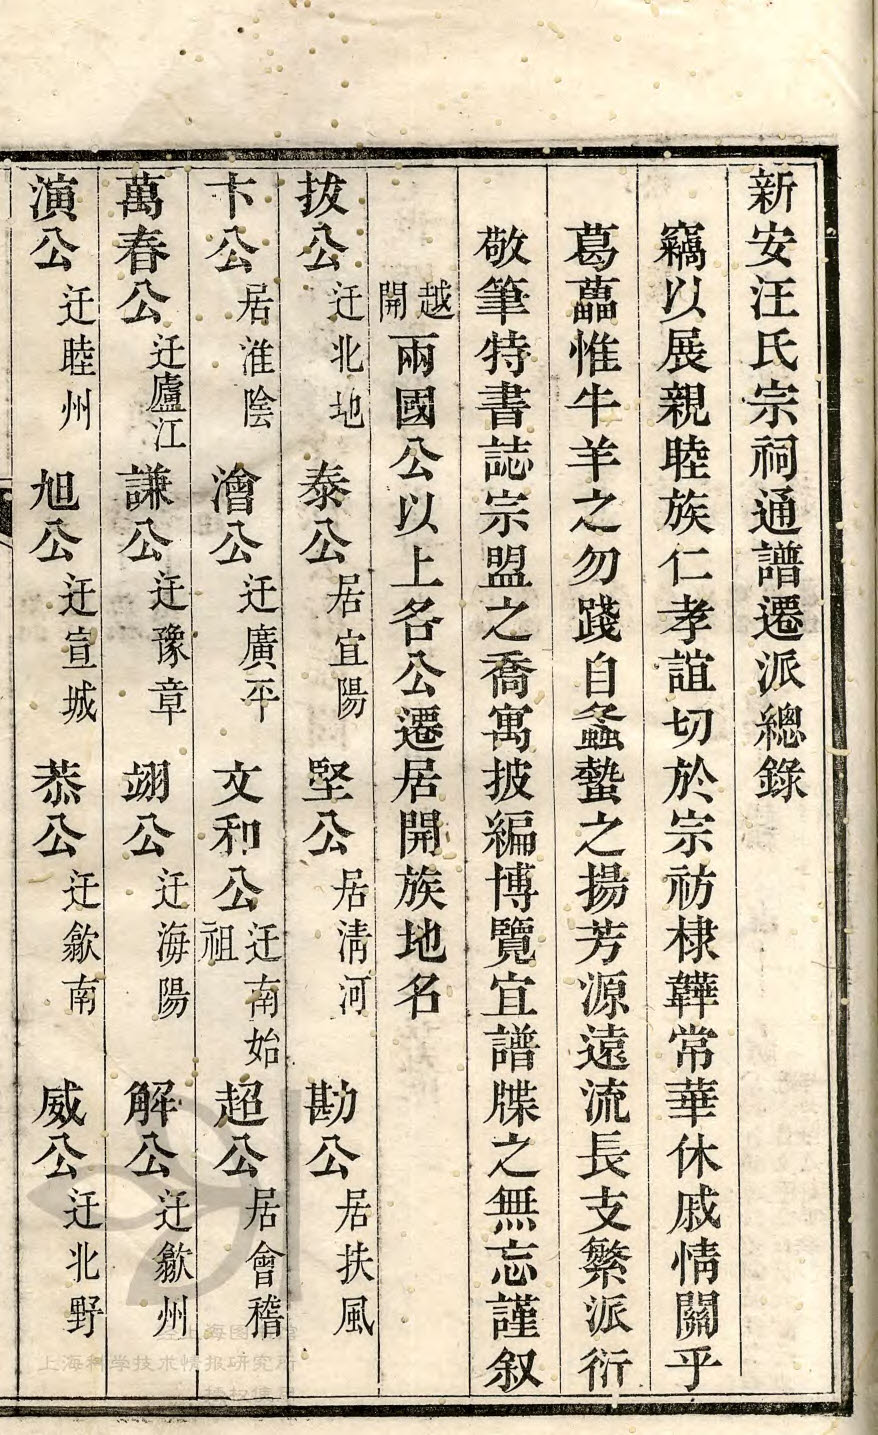 新安汪氏宗祠通譜遷派總錄
竊以展親睦族仁孝誼切於宗祊棣韡常華休戚情關乎
葛藟惟牛羊之勿踐自螽蟄之揚芳源遠流長支繁派衍
敬筆特書誌宗盟之喬寓披編博覽宜譜牒之無忘謹叙
越開兩國公以上各公遷居開族地名
拔公 迁北地 泰公 居宜陽 堅公 居清河 勘公 居扶風
卞公 居淮陰 澮公 迁廣平 文和公 迁南始祖 超公 居會稽
萬春公 迁廬江 謙公 迁豫章 翊公 迁海陽 解公 迁歙州
演公 迁睦州 旭公 迁宣城 恭公 迁歙南 威公 迁北野
上海图书馆
上海科学技术情报研究所